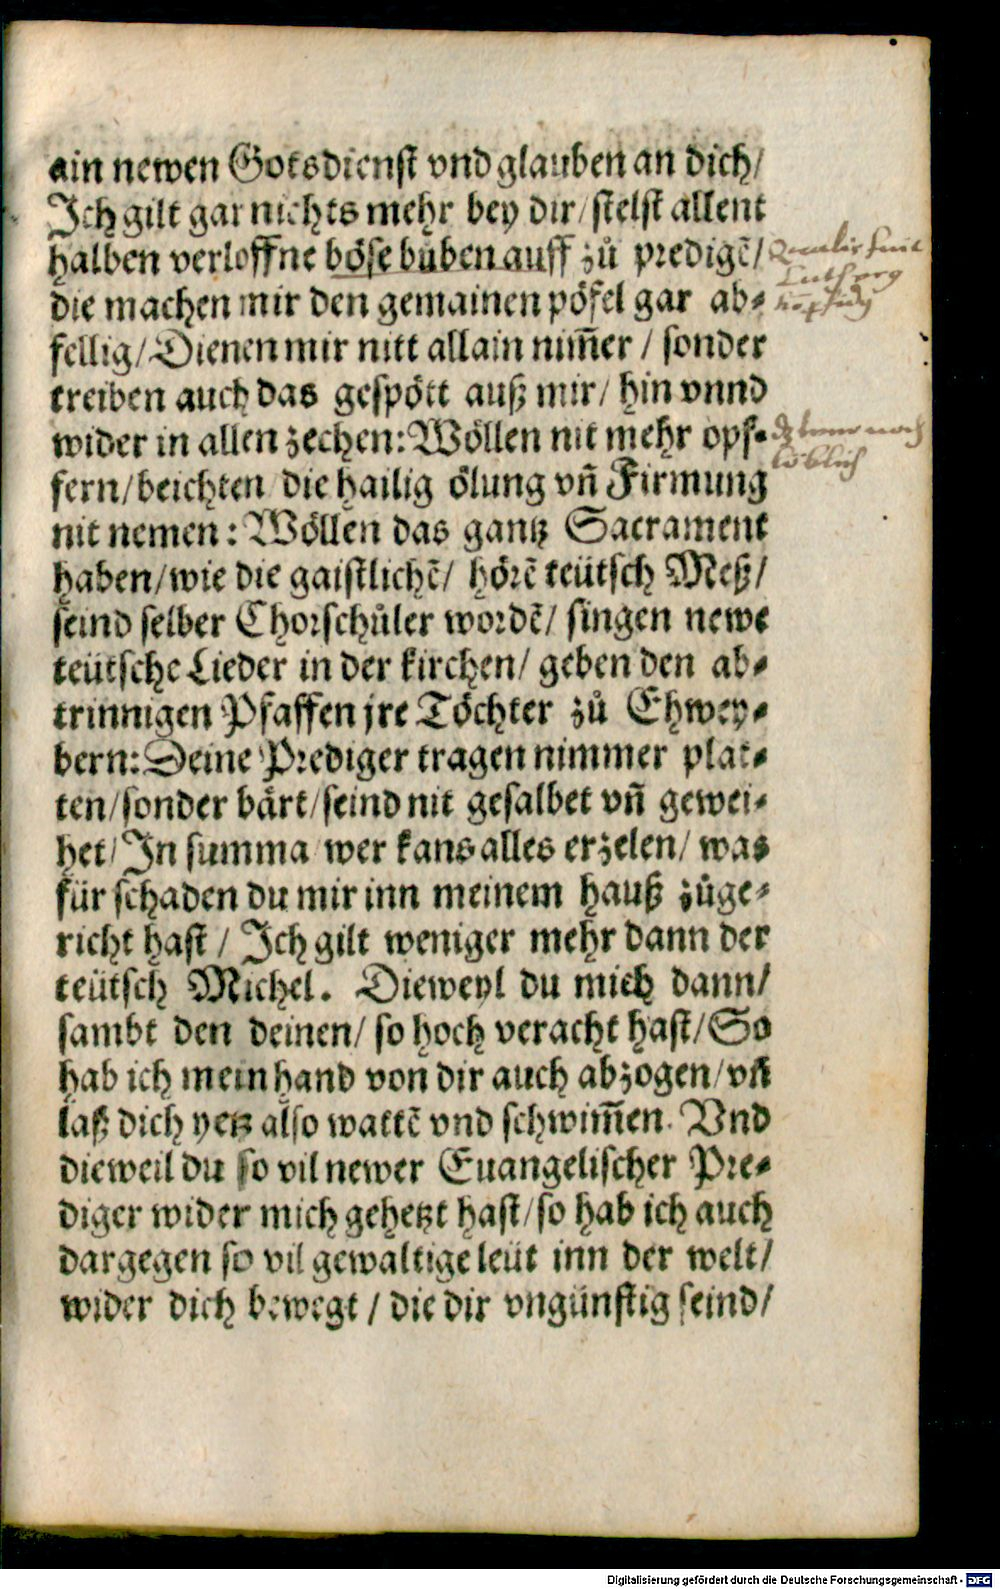 ain newen Gotsdienst vnd glauben an dich/
Ich gilt gar nichts mehr bey dir/ stelst allent
halben verloffne böse bůben auff zů predigẽ/
die machen mir den gemainen pöfel gar ab⸗
fellig/ Dienen mir nitt allain nim̃er / sonder
treiben auch das gespött auß mir/ hin vnnd
wider in allen zechen: Wöllen nit mehr opf⸗
fern/ beichten die hailig ölung vñ Firmung
nit nemen: Wöllen das gantz Sacrament
haben/ wie die gaistlichẽ/ hörẽ teütsch Meß/
seind selber Chorschůler wordẽ/ singen newe
teütsche Lieder in der kirchen/ geben den ab⸗
trinnigen Pfaffen jre Töchter zů Ehwey⸗
bern: Deine Prediger tragen nimmer plat⸗
ten/ sonder bärt/ seind nit gesalbet vñ gewei⸗
het/ In summa wer kans alles erzelen/ was
für schaden du mir inn meinem hauß zůge⸗
richt hast / Ich gilt weniger mehr dann der
teütsch Michel. Dieweyl du mich dann/
sambt den deinen/ so hoch veracht hast/ So
hab ich mein hand von dir auch abzogen/ vñ
laß dich yetz also wattẽ vnd schwim̃en. Vnd
dieweil du so vil newer Euangelischer Pre⸗
diger wider mich gehetzt hast/ so hab ich auch
dargegen so vil gewaltige leüt inn der welt/
wider dich bewegt / die dir vngünstig seind/
löblich
Digitalisierung gefördert durch die Deutsche Forschungsgemeinschaft - DFG